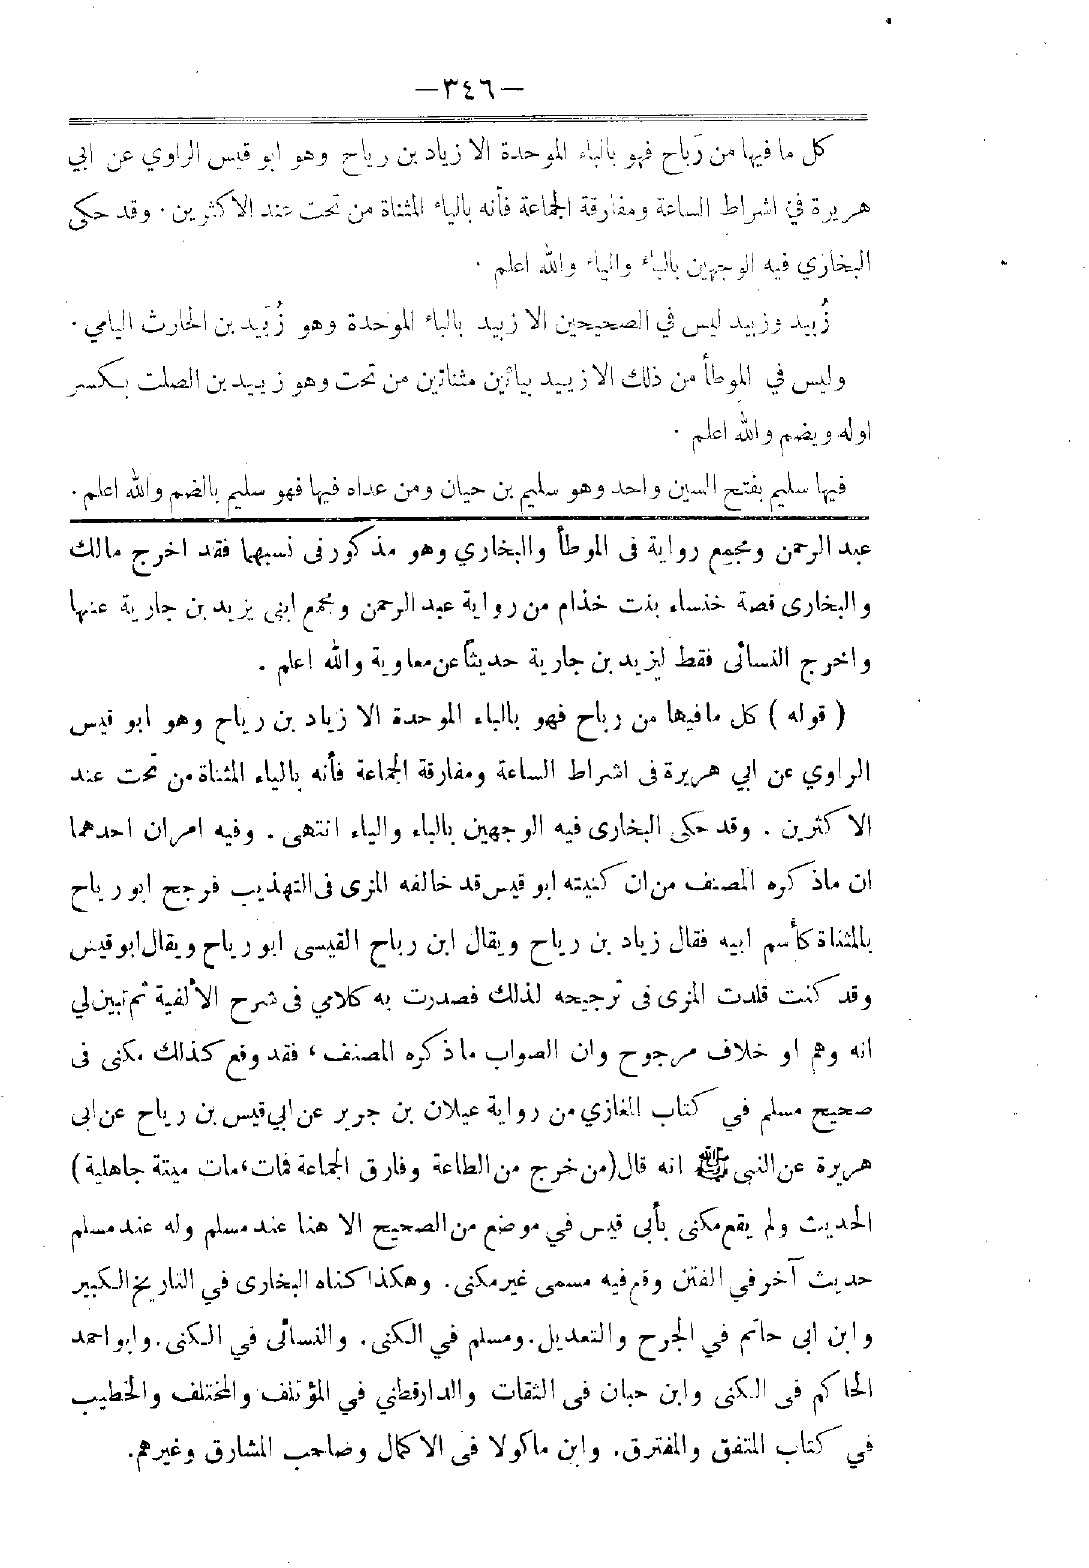 —٣٤٦—
كل ما فيها من رَباح فهو بالباء الموحدة الا زياد بن رياح وهو ابو قيس الراوي عن ابي
هريرة في اشراط الساعة ومفارقة الجماعة فأنه بالياء المثناة من تحت عند الاكثرين . وقد حكى
البخاري فيه الوجهين بالباء والياء والله اعلم .
زُبيد وزييد ليس في الصحيحين الا زبيد بالباء الموحدة وهو زُبَيد بن الحارث اليامي .
وليس في الموطأ من ذلك الا زييد بيائين مثناتين من تحت وهو زييد بن الصلت بكسر
اوله ويضم والله اعلم .
فيها سليم بفتح السين واحد وهو سليم بن حيان ومن عداه فيها فهو سليم بالضم والله اعلم .
عبد الرحمن ومجمع رواية فى الموطأ والبخاري وهو مذكور فى نسبهما فقد اخرج مالك
والبخارى قصة خنساء بنت خذام من رواية عبد الرحمن ومجمع ابنى يزيد بن جارية عنها
واخرج النسائى فقط ليزيد بن جارية حديثاً عن معاوية والله اعلم .
( قوله ) كل مافيها من رباح فهو بالباء الموحدة الا زياد بن رياح وهو ابو قيس
الراوي عن ابي هريرة فى اشراط الساعة ومفارقة الجماعة فأنه بالياء المثناة من تحت عند
الاكثرين . وقد حكى البخارى فيه الوجهين بالباء والياء انتهى . وفيه امران احدهما
ان ماذكره المصنف من ان كنيته ابو قيس قد خالفه المزى فى التهذيب فرجح ابو رياح
بالمثناة كأسم ابيه فقال زياد بن رياح ويقال ابن رباح القيسى ابو رياح ويقال ابو قيس
وقد كنت قلدت المزى فى ترجيحه لذلك فصدرت به كلامي فى شرح الألفية ثم تبين لي
انه وهم او خلاف مرجوح وان الصواب ماذكره المصنف ، فقد وقع كذلك مكنى فى
صحيح مسلم في كتاب المغازي من رواية غيلان بن جرير عن ابي قيس بن رياح عن ابى
هريرة عن النبى ﷺ انه قال (من خرج من الطاعة وفارق الجماعة فمات ، مات ميتة جاهلية)
الحديث ولم يقع مكنى بأبى قيس في موضع من الصحيح الا هنا عند مسلم وله عند مسلم
حديث آخر في الفتن وقع فيه مسمى غير مكنى . وهكذا كناه البخارى في التاريخ الكبير
وابن ابى حاتم في الجرح والتعديل . ومسلم في الكنى . والنسائى في الكنى . وابو احمد
الحاكم فى الكنى وابن حبان فى الثقات والدارقطني في المؤتلف والمختلف والخطيب
في كتاب المتفق والمفترق . وابن ماكولا فى الاكمال وصاحب المشارق وغيرهم .